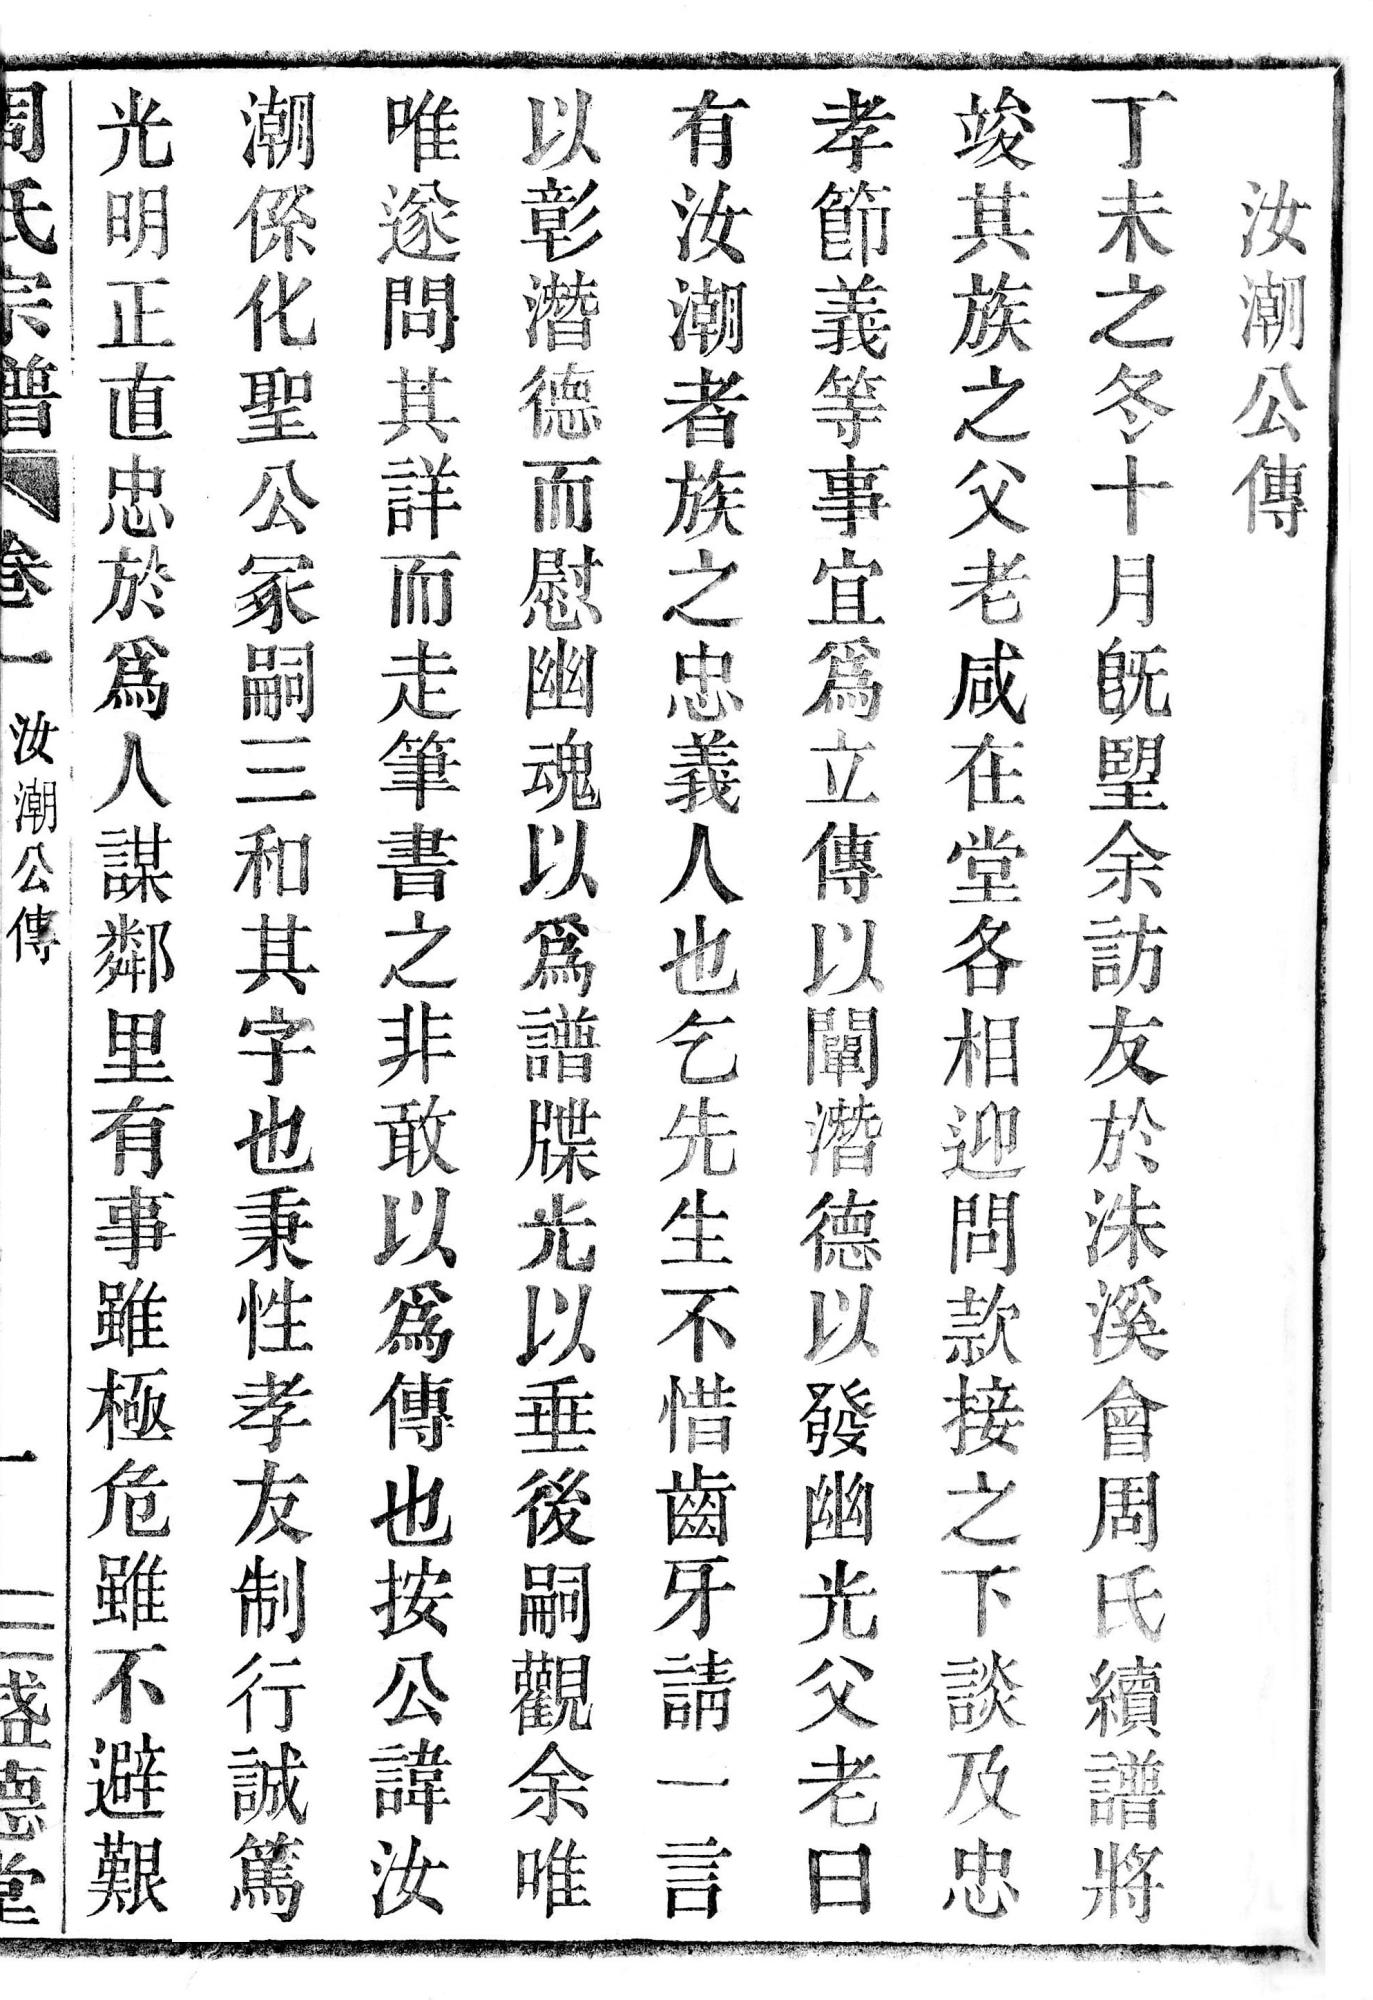 汝潮公傳
丁未之冬十月旣朢余訪友於洙溪會周氏續譜將
竣其族之父老咸在堂各相迎問款接之下談及忠
孝節義等事宜爲立傳以闡潛德以發幽光父老曰
有汝潮者族之忠義人也乞先生不惜齒牙請一言
以彰潛德而慰幽魂以爲譜牒光以垂後嗣觀余唯
唯遂問其詳而走筆書之非敢以爲傳也按公諱汝
潮係化聖公冢嗣三和其字也秉性孝友制行誠篤
光明正直忠於爲人謀鄰里有事雖極危雖不避艱
周氏宗譜 卷一 汝潮公傳 一 三盛德堂